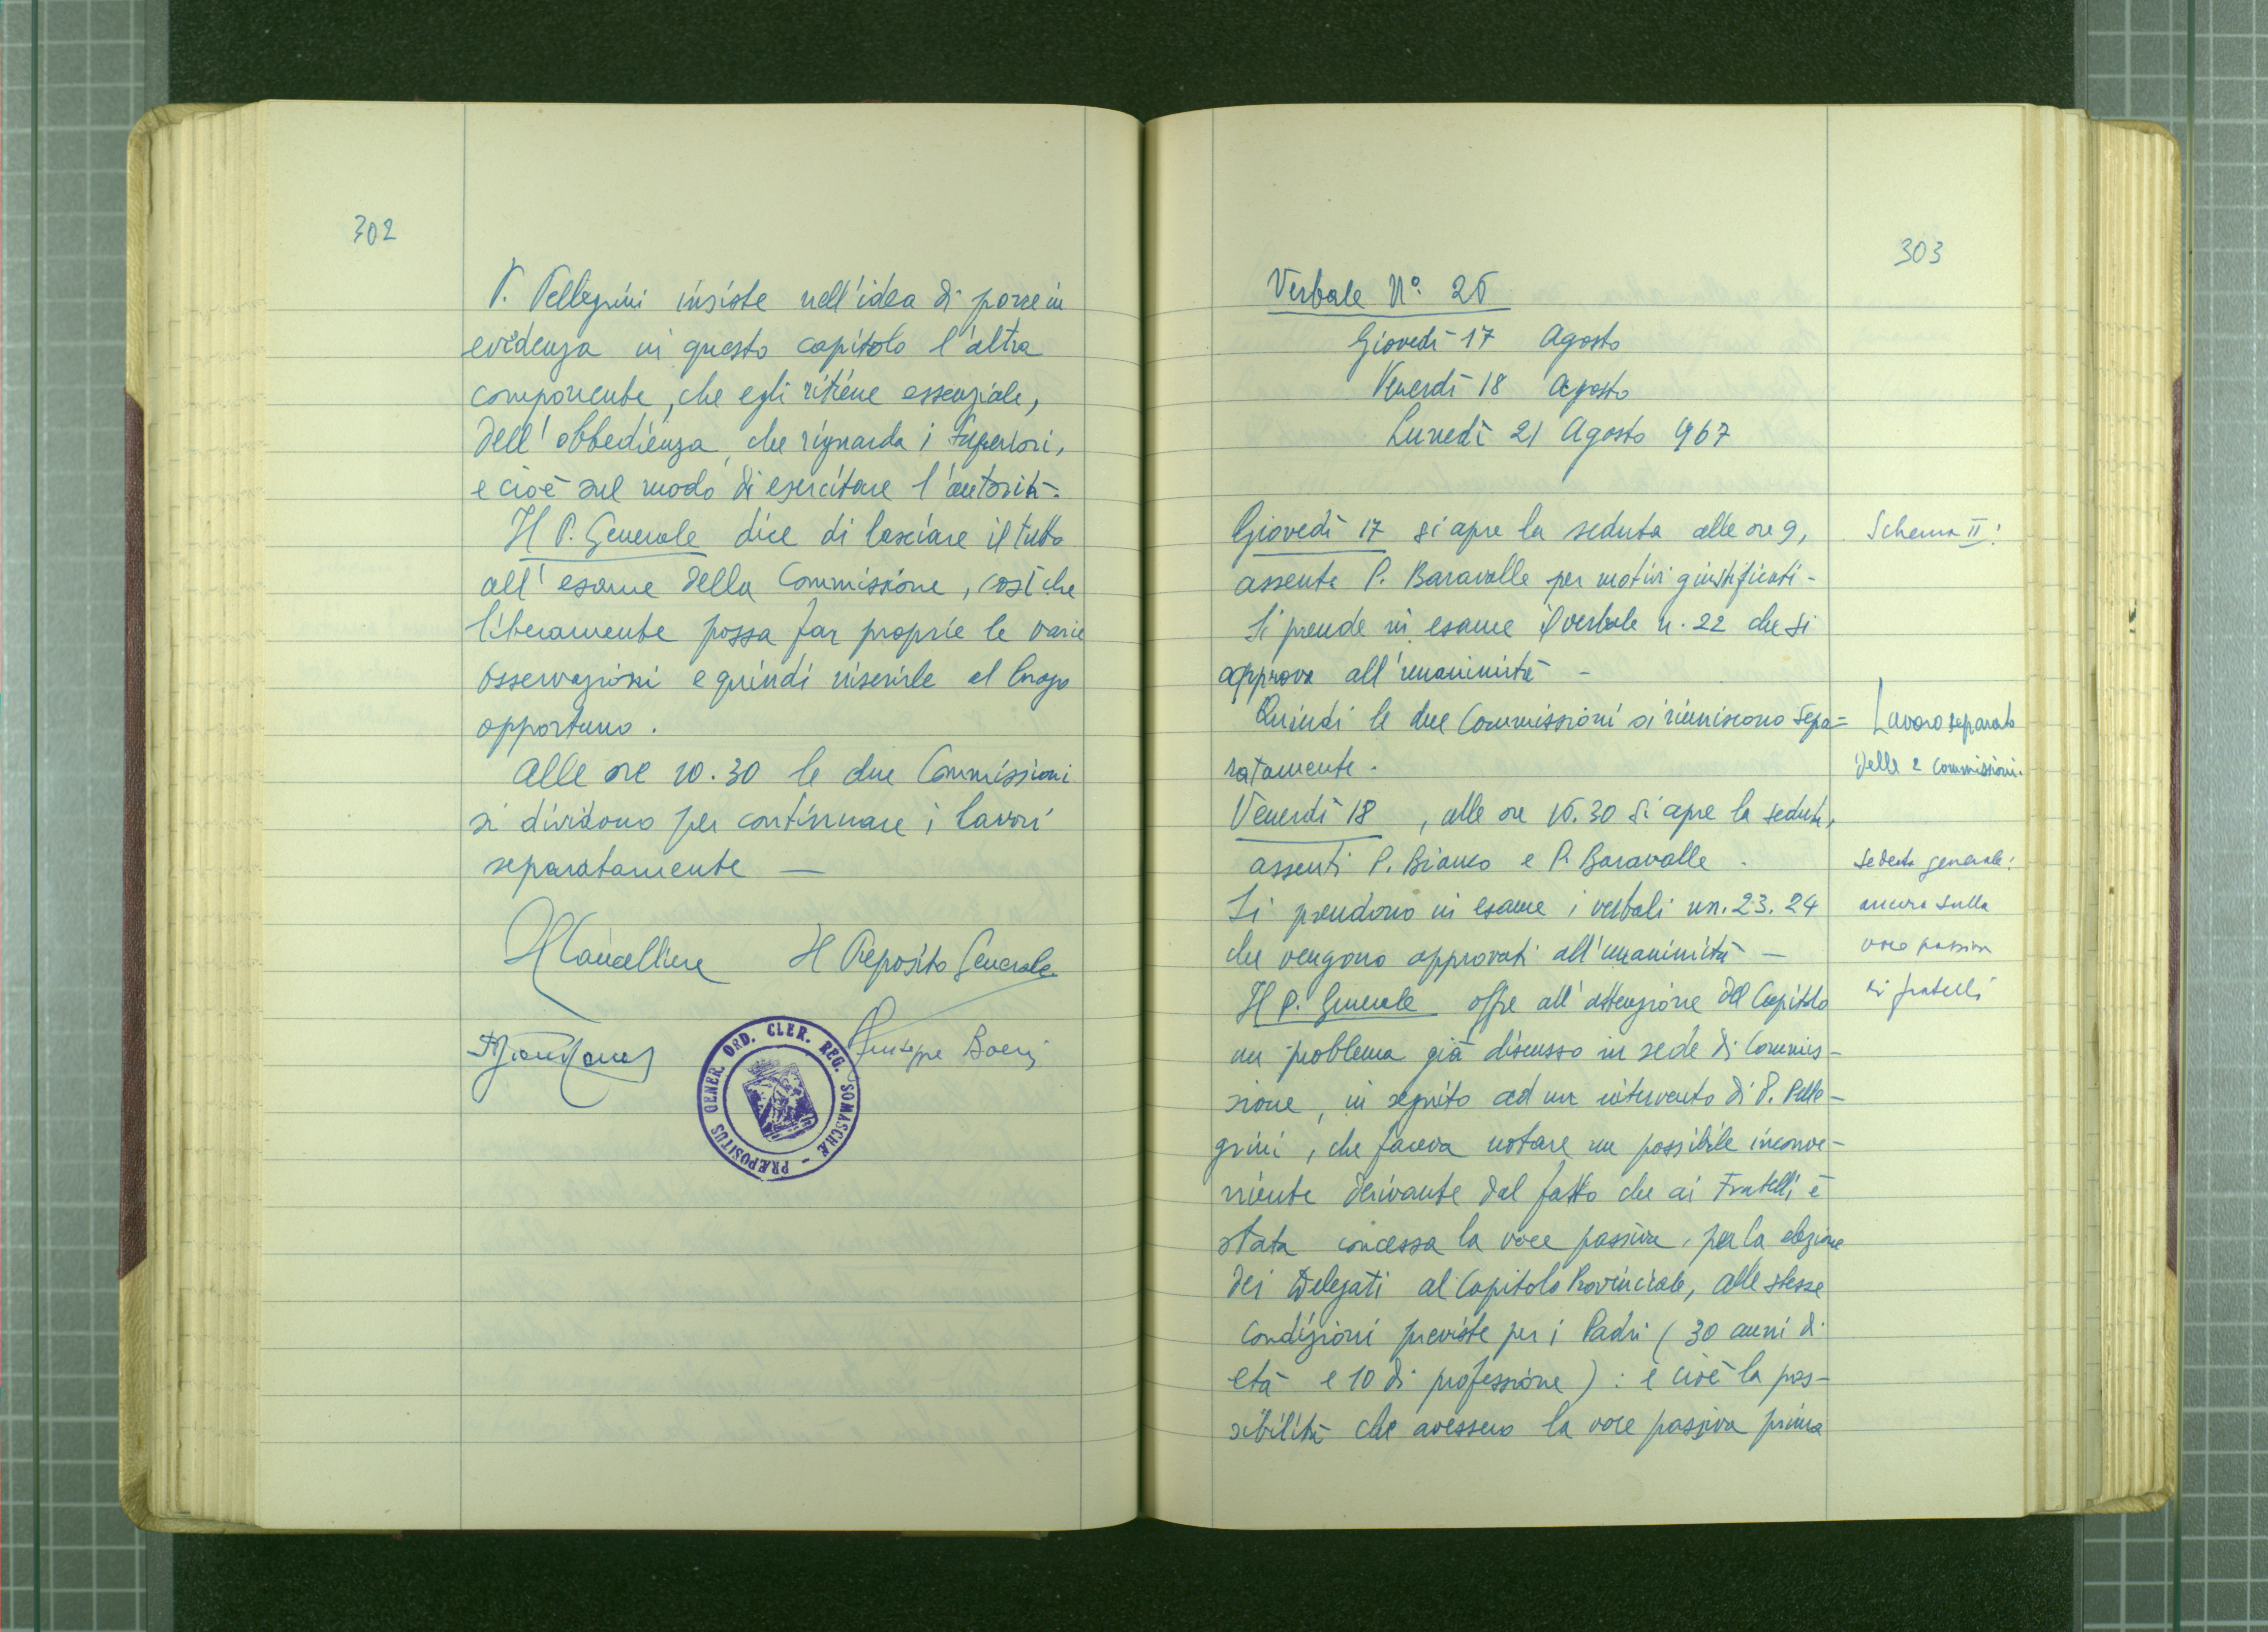 302
P. Pellegrini insiste nell'idea di porre in
evidenza in questo capitolo l'altra
componente, che egli ritiene essenziale,
dell'obbedienza, che riguarda i Superiori,
e cioè sul modo di esercitare l'autorità.
Il P. Generale dice di lasciare il tutto
all'esame della Commissione, così che
liberamente possa far proprie le varie
osservazioni e quindi inserirle al luogo
opportuno.
Alle ore 10.30 le due Commissioni
si dividono per continuare i lavori
separatamente —
Il Cancelliere Il Preposito Generale
Giuseppe Boeris
PRÆPOSITUS GENER. ORD. CLER. REG. SOMASCHÆ -
303
Verbale N° 25
Giovedì 17 Agosto
Venerdì 18 Agosto
Lunedì 21 Agosto 967
Giovedì 17 si apre la seduta alle ore 9,
assente P. Baravalle per motivi giustificati -
Si prende in esame il verbale n. 22 che si
approva all'unanimità -
Quindi le due Commissioni si riuniscono sepa=
ratamente.
Venerdì 18, alle ore 16.30 si apre la seduta,
assenti P. Bianco e P. Baravalle.
Si prendono in esame i verbali nn. 23. 24
che vengono approvati all'unanimità —
Il P. Generale offre all'attenzione del Capitolo
un problema già discusso in sede di Commis-
sione, in seguito ad un intervento di P. Pelle-
grini, che faceva notare un possibile inconve-
niente derivante dal fatto che ai Fratelli è
stata concessa la voce passiva, per la elezione
dei Delegati al Capitolo Provinciale, alle stesse
condizioni previste per i Padri (30 anni di
età e 10 di professione): e cioè la pos-
sibilità che avessero la voce passiva prima
Schema II:
Lavoro separato
delle 2 commissioni.
Seduta generale:
ancora sulla
voce passiva
ai fratelli